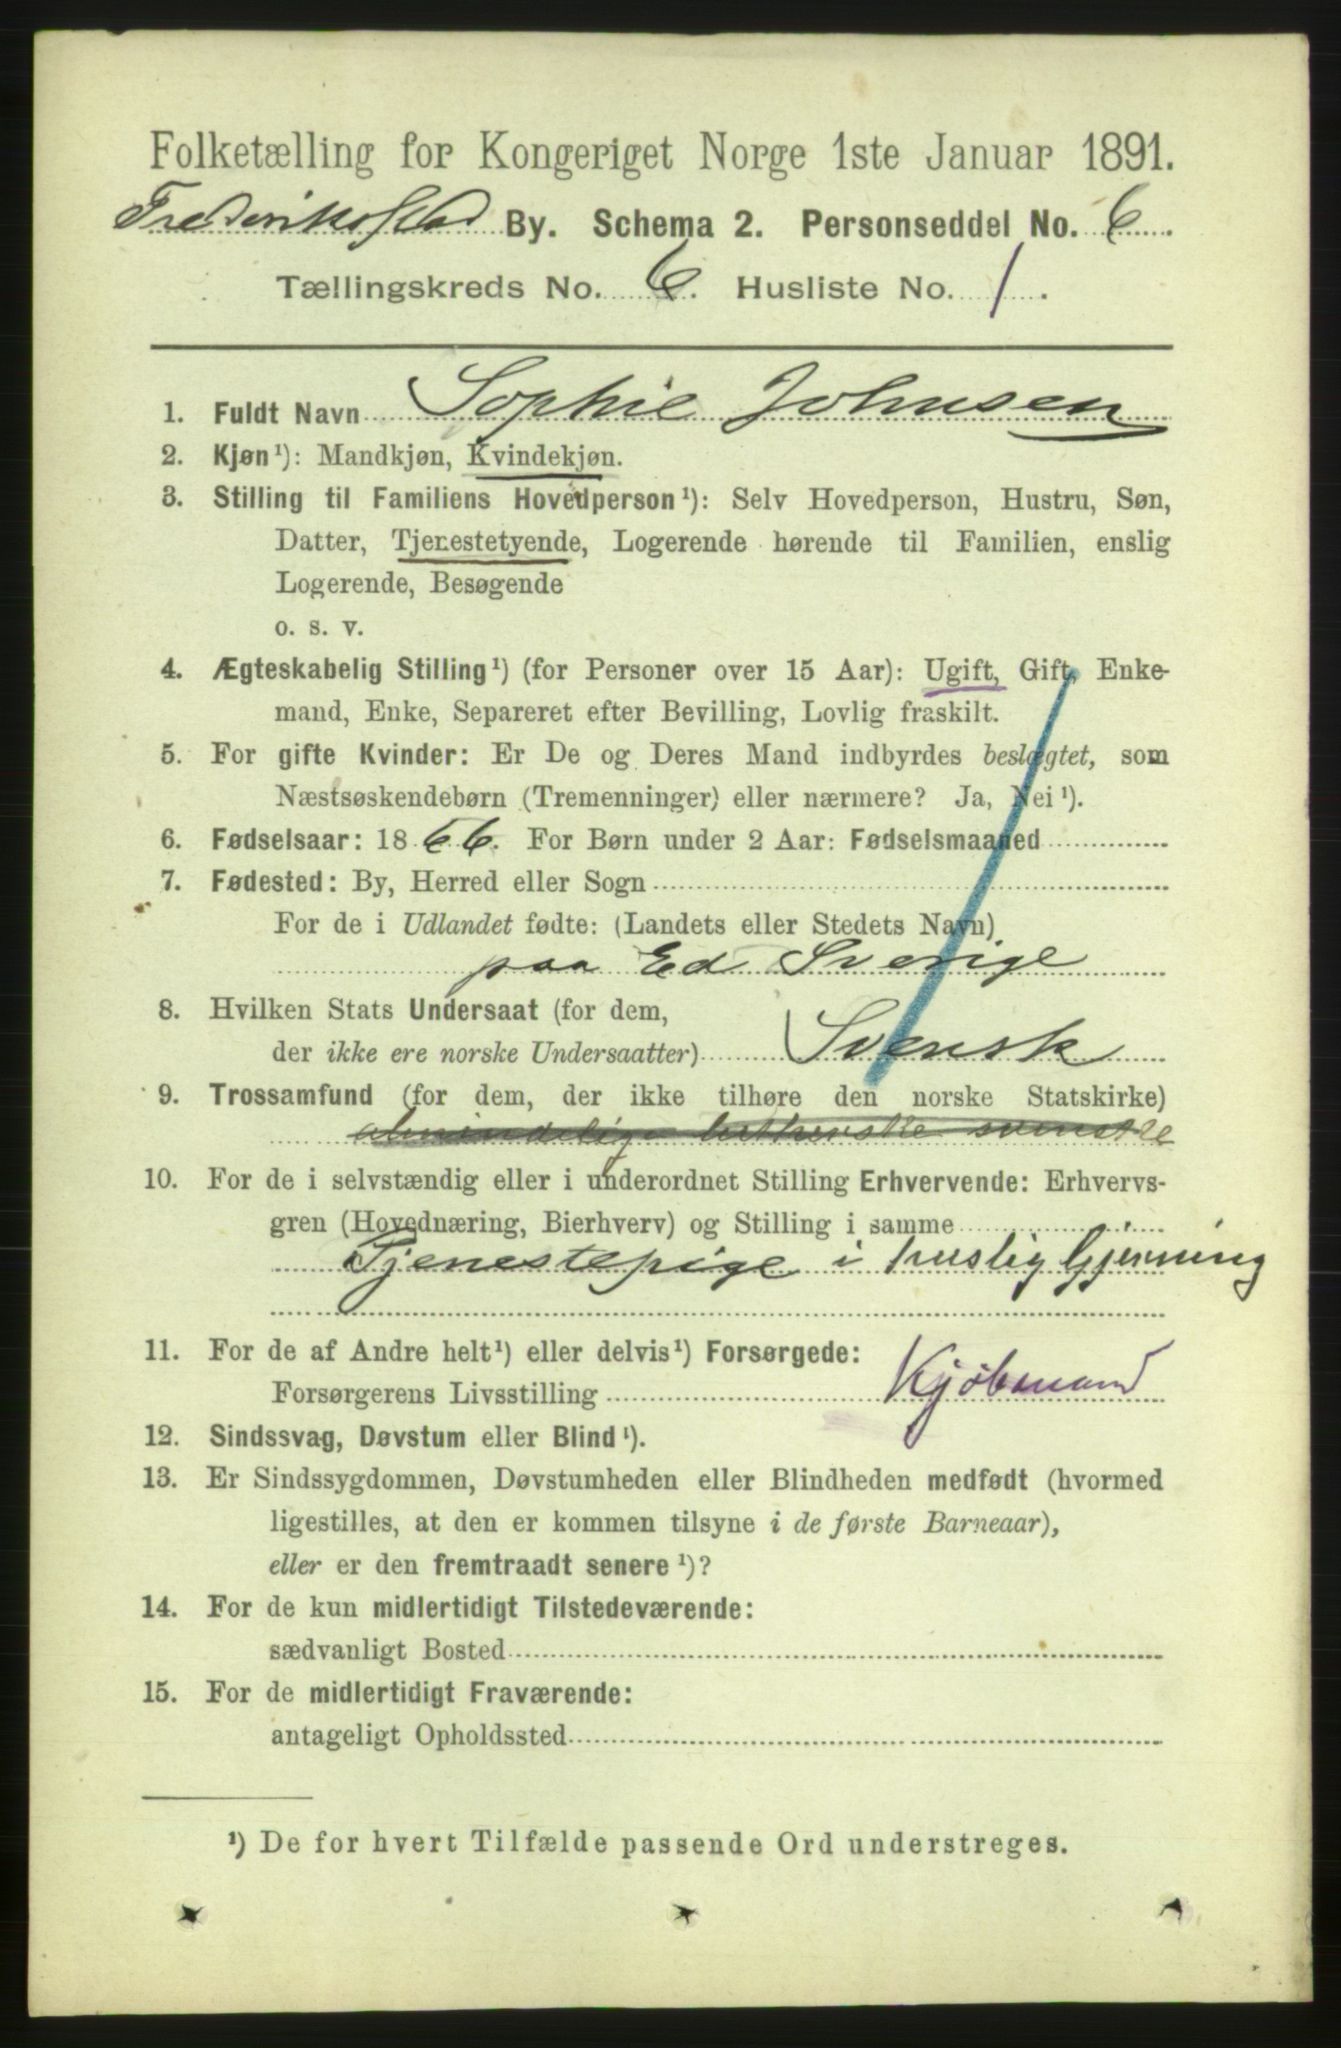 Folketælling for Kongeriget Norge 1ste Januar 1891.
Frederiksstad By. Schema 2. Personseddel No. 6.
Tællingskreds No. 6. Husliste No. 1.
1. Fuldt Navn Sophie Johnsen
2. Kjøn¹): Mandkjøn, Kvindekjøn.
3. Stilling til Familiens Hovedperson¹): Selv Hovedperson, Hustru, Søn,
Datter, Tjenestetyende, Logerende hørende til Familien, enslig
Logerende, Besøgende
o. s. v.
4. Ægteskabelig Stilling¹) (for Personer over 15 Aar): Ugift, Gift, Enke-
mand, Enke, Separeret efter Bevilling, Lovlig fraskilt.
5. For gifte Kvinder: Er De og Deres Mand indbyrdes beslægtet, som
Næstsøskendebørn (Tremenninger) eller nærmere? Ja, Nei¹).
6. Fødselsaar: 1866. For Børn under 2 Aar: Fødselsmaaned
7. Fødested: By, Herred eller Sogn
For de i Udlandet fødte: (Landets eller Stedets Navn)
paa Ed Sverige
8. Hvilken Stats Undersaat (for dem,
der ikke ere norske Undersaatter) Svensk
9. Trossamfund (for dem, der ikke tilhøre den norske Statskirke)
almindelige lutherske svenske
10. For de i selvstændig eller i underordnet Stilling Erhvervende: Erhvervs-
gren (Hovednæring, Bierhverv) og Stilling i samme
Tjenestepige i huslig Gjerning
11. For de af Andre helt¹) eller delvis¹) Forsørgede:
Forsørgerens Livsstilling Kjøbmand
12. Sindssvag, Døvstum eller Blind¹).
13. Er Sindssygdommen, Døvstumheden eller Blindheden medfødt (hvormed
ligestilles, at den er kommen tilsyne i de første Barneaar),
eller er den fremtraadt senere¹)?
14. For de kun midlertidigt Tilstedeværende:
sædvanligt Bosted
15. For de midlertidigt Fraværende:
antageligt Opholdssted
¹) De for hvert Tilfælde passende Ord understreges.